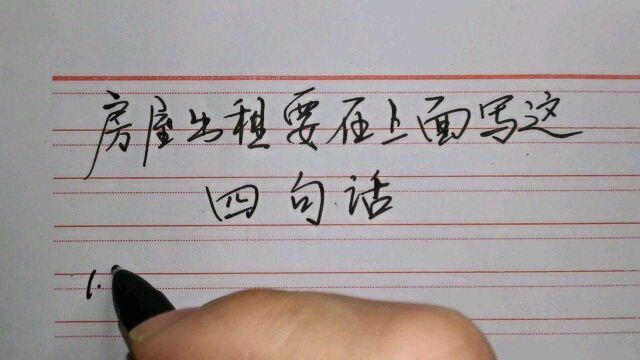 房屋出租要在上面写这
四句话
1.